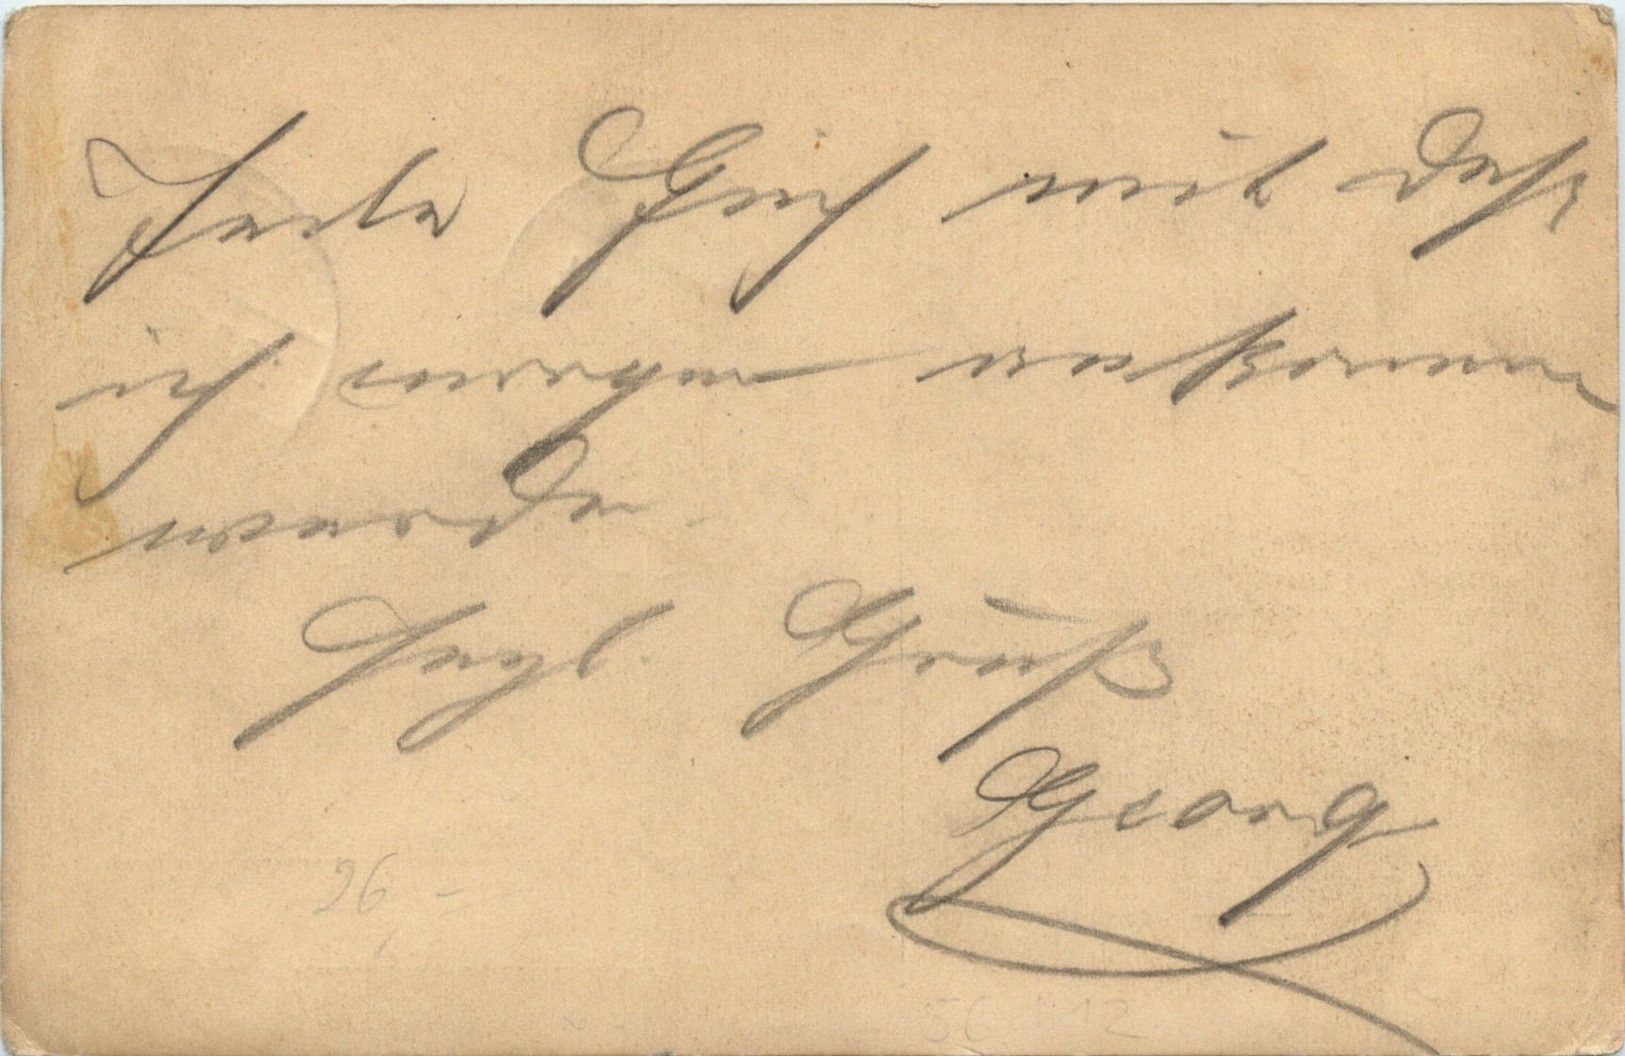 Teile Euch mit daß
ich morgen ankommen
werde.
Herzl. Gruß
Georg
26 -
56112